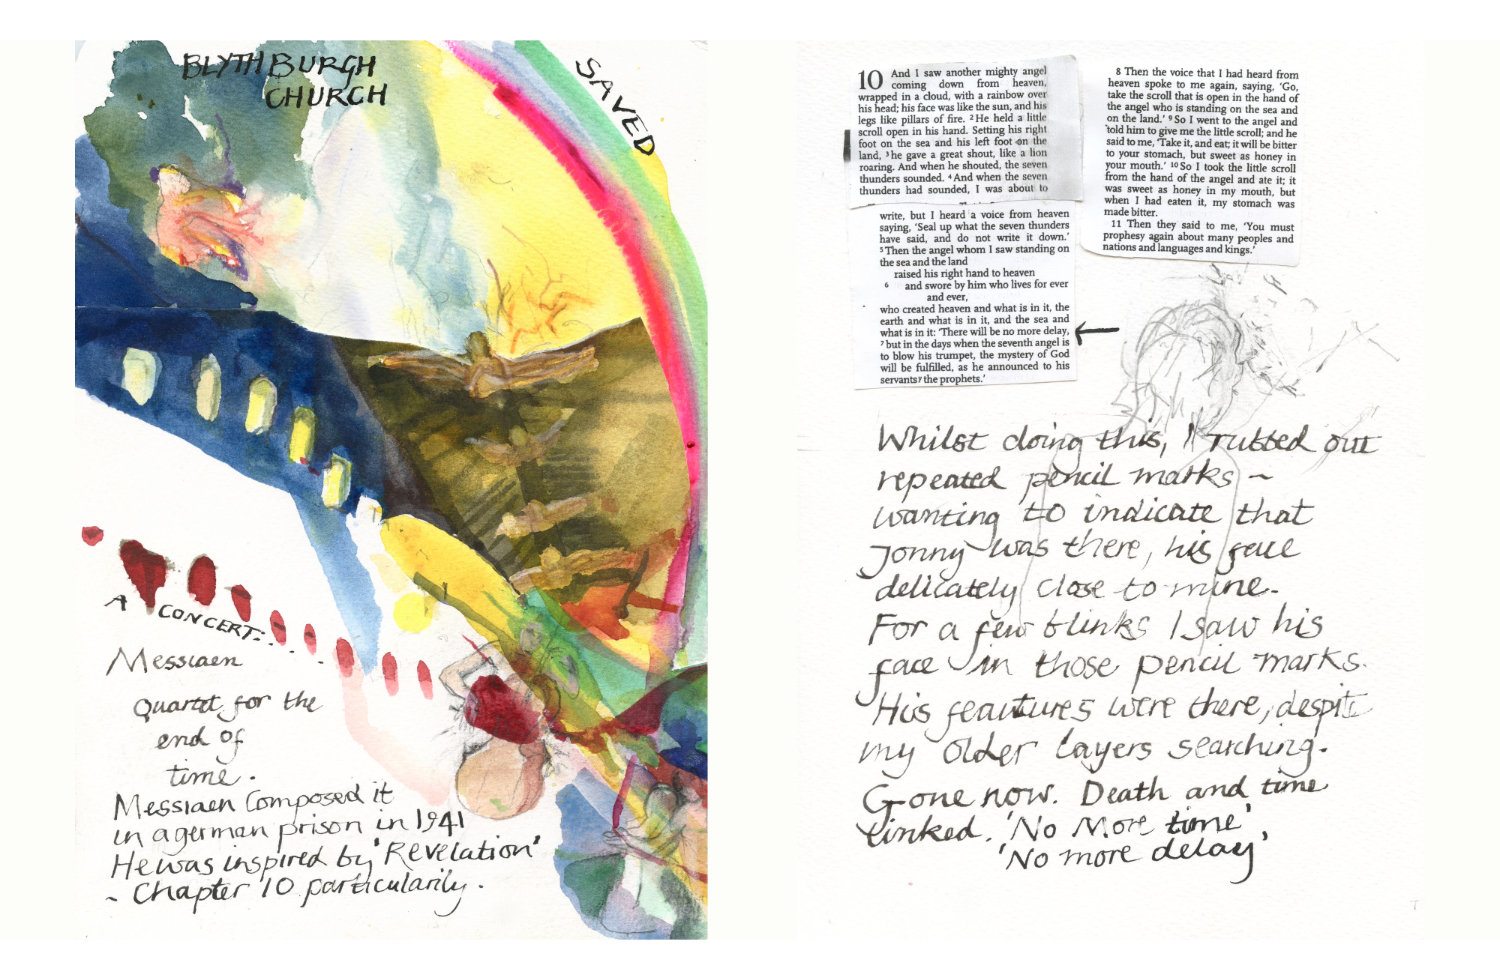 BLYTHBURGH
CHURCH
SAVED
A CONCERT:....
Messiaen
Quartet for the
end of
time.
Messiaen Composed it
in a german prison in 1941
He was inspired by 'Revelation'
~ Chapter 10 particularily.
10 And I saw another mighty angel
coming down from heaven,
wrapped in a cloud, with a rainbow over
his head; his face was like the sun, and his
legs like pillars of fire. 2 He held a little
scroll open in his hand. Setting his right
foot on the sea and his left foot on the
land, 3 he gave a great shout, like a lion
roaring. And when he shouted, the seven
thunders sounded. 4 And when the seven
thunders had sounded, I was about to
write, but I heard a voice from heaven
saying, 'Seal up what the seven thunders
have said, and do not write it down.'
5 Then the angel whom I saw standing on
the sea and the land
raised his right hand to heaven
6 and swore by him who lives for ever
and ever,
who created heaven and what is in it, the
earth and what is in it, and the sea and
what is in it: 'There will be no more delay,
7 but in the days when the seventh angel is
to blow his trumpet, the mystery of God
will be fulfilled, as he announced to his
servants y the prophets.'
8 Then the voice that I had heard from
heaven spoke to me again, saying, 'Go,
take the scroll that is open in the hand of
the angel who is standing on the sea and
on the land.' 9 So I went to the angel and
told him to give me the little scroll; and he
said to me, 'Take it, and eat; it will be bitter
to your stomach, but sweet as honey in
your mouth.' 10 So I took the little scroll
from the hand of the angel and ate it; it
was sweet as honey in my mouth, but
when I had eaten it, my stomach was
made bitter.
11 Then they said to me, 'You must
prophesy again about many peoples and
nations and languages and kings.'
Whilst doing this, I rubbed out
repeated pencil marks ~
wanting to indicate that
Jonny was there, his face
delicately close to mine.
For a few blinks I saw his
face in those pencil marks.
His feautures were there, despite
my older layers searching.
Gone now. Death and time
linked. 'No More time'
'No more delay'